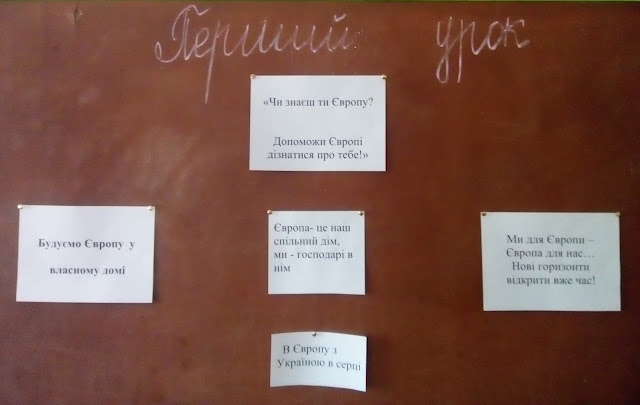 Перший урок
«Чи знаєш ти Європу?
Допоможи Європі
дізнатися про тебе!»
Будуємо Європу у
власному домі
Європа- це наш
спільний дім,
ми - господарі в
нім
Ми для Європи –
Європа для нас…
Нові горизонти
відкрити вже час!
В Європу з
Україною в серці